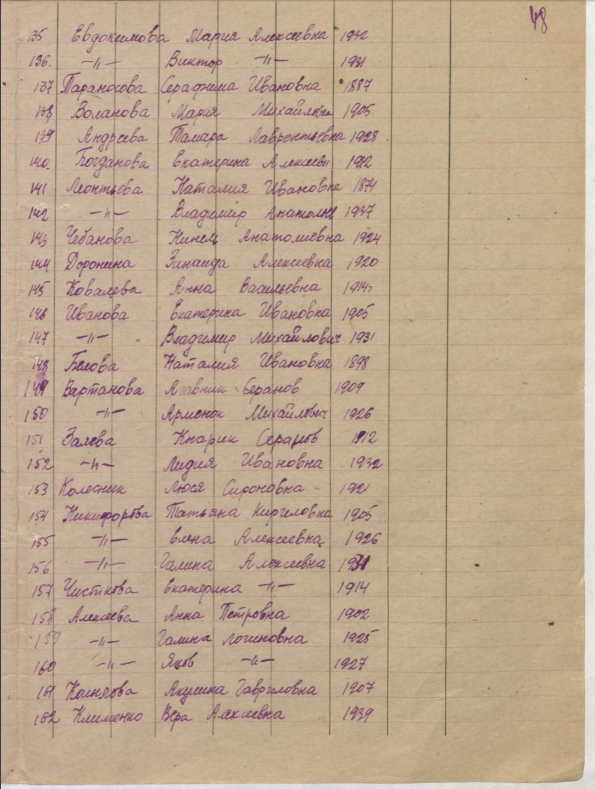 48
135 Евдокимова Мария Алексеевна 1932
136. -"- Виктор -"- 1931
137 Тарансова Серафима Ивановна 1887
138 Воланова Мария Михайловн 1905
139 Андреева Тамара Лаврентьевна 1928
140. Богданова Екатерина Алексеевн 1912
141 Леонтьева Наталия Ивановна 1874
142 -"- Владимир Анатольев 1937
143 Чебанова Нинель Анатолиевна 1924
144 Доронина Зинаида Алексеевна 1920
145 Ковалева Анна Васильевна 1914
146 Иванова Екатерина Ивановна 1905
147 -"- Владимир Михайлович 1931
148 Белова Наталия Ивановна 1898
149 Вартанова Агавник Серапов 1909
150 -"- Арменок Михайлович 1926
151 Залева Кнарик Серапов 1912
152 -"- Лидия Ивановна 1932
153 Колесник Люся Сироновна 1921
154 Никифорова Татьяна Кириловна 1905
155 -"- Елена Алексеевна 1926
156 -"- Галина Алексеевна 1931
157 Чистякова Екатерина -"- 1914
158 Алексеева Анна Петровна 1902
159 -"- Галина Логиновна 1925
160 -"- Яков -"- 1927
161 Акулина Гавриловна 1907
162 Клименко Вера Алексеевна 1939